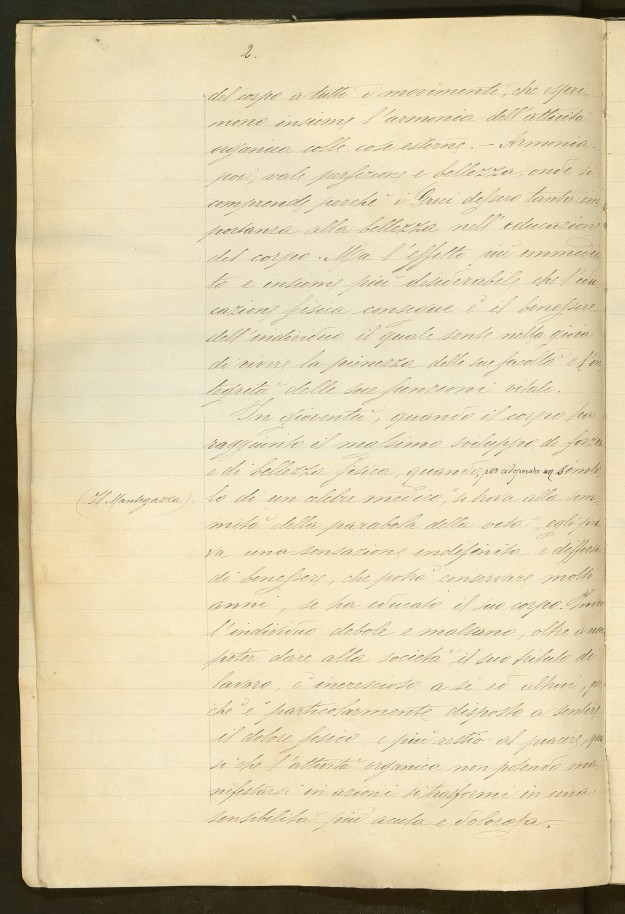 2.
del corpo a tutti i movimenti, che espri
mono insieme l'armonia dell'attività
organica colle cose esterne. – Armonia
poi, vale perfezione e bellezza, onde si
comprende perchè i Greci dessero tanta im
portanza alla bellezza nell'educazione
del corpo. Ma l'effetto più immedia
to e insieme più desiderabile che l'edu
cazione fisica consegue è il benessere
dell'individuo il quale sente nella gioia
di vivere la pienezza delle sue facoltà e l'in
tegrità delle sue funzioni vitali.
In gioventù, quando il corpo ha
raggiunto il massimo sviluppo di forza
e di bellezza fisica, quando, per adoperare un simbo
(Il Mantegazza) lo di un celebre medico, si trova alla som
mità della parabola della vita, egli pro
va una sensazione indefinita e diffusa
di benessere, che potrà conservare molti
anni, se ha educato il suo corpo. Invece
l'individuo debole e malsano, oltre a non
poter dare alla società il suo tributo di
lavoro, è increscioso a sè ed altrui, per
chè è particolarmente disposto a sentire
il dolore fisico e più restio al piacere, qua
si che l'attività organica non potendo ma
nifestarsi in azioni si trasformi in una
sensibilità più acuta e dolorosa.